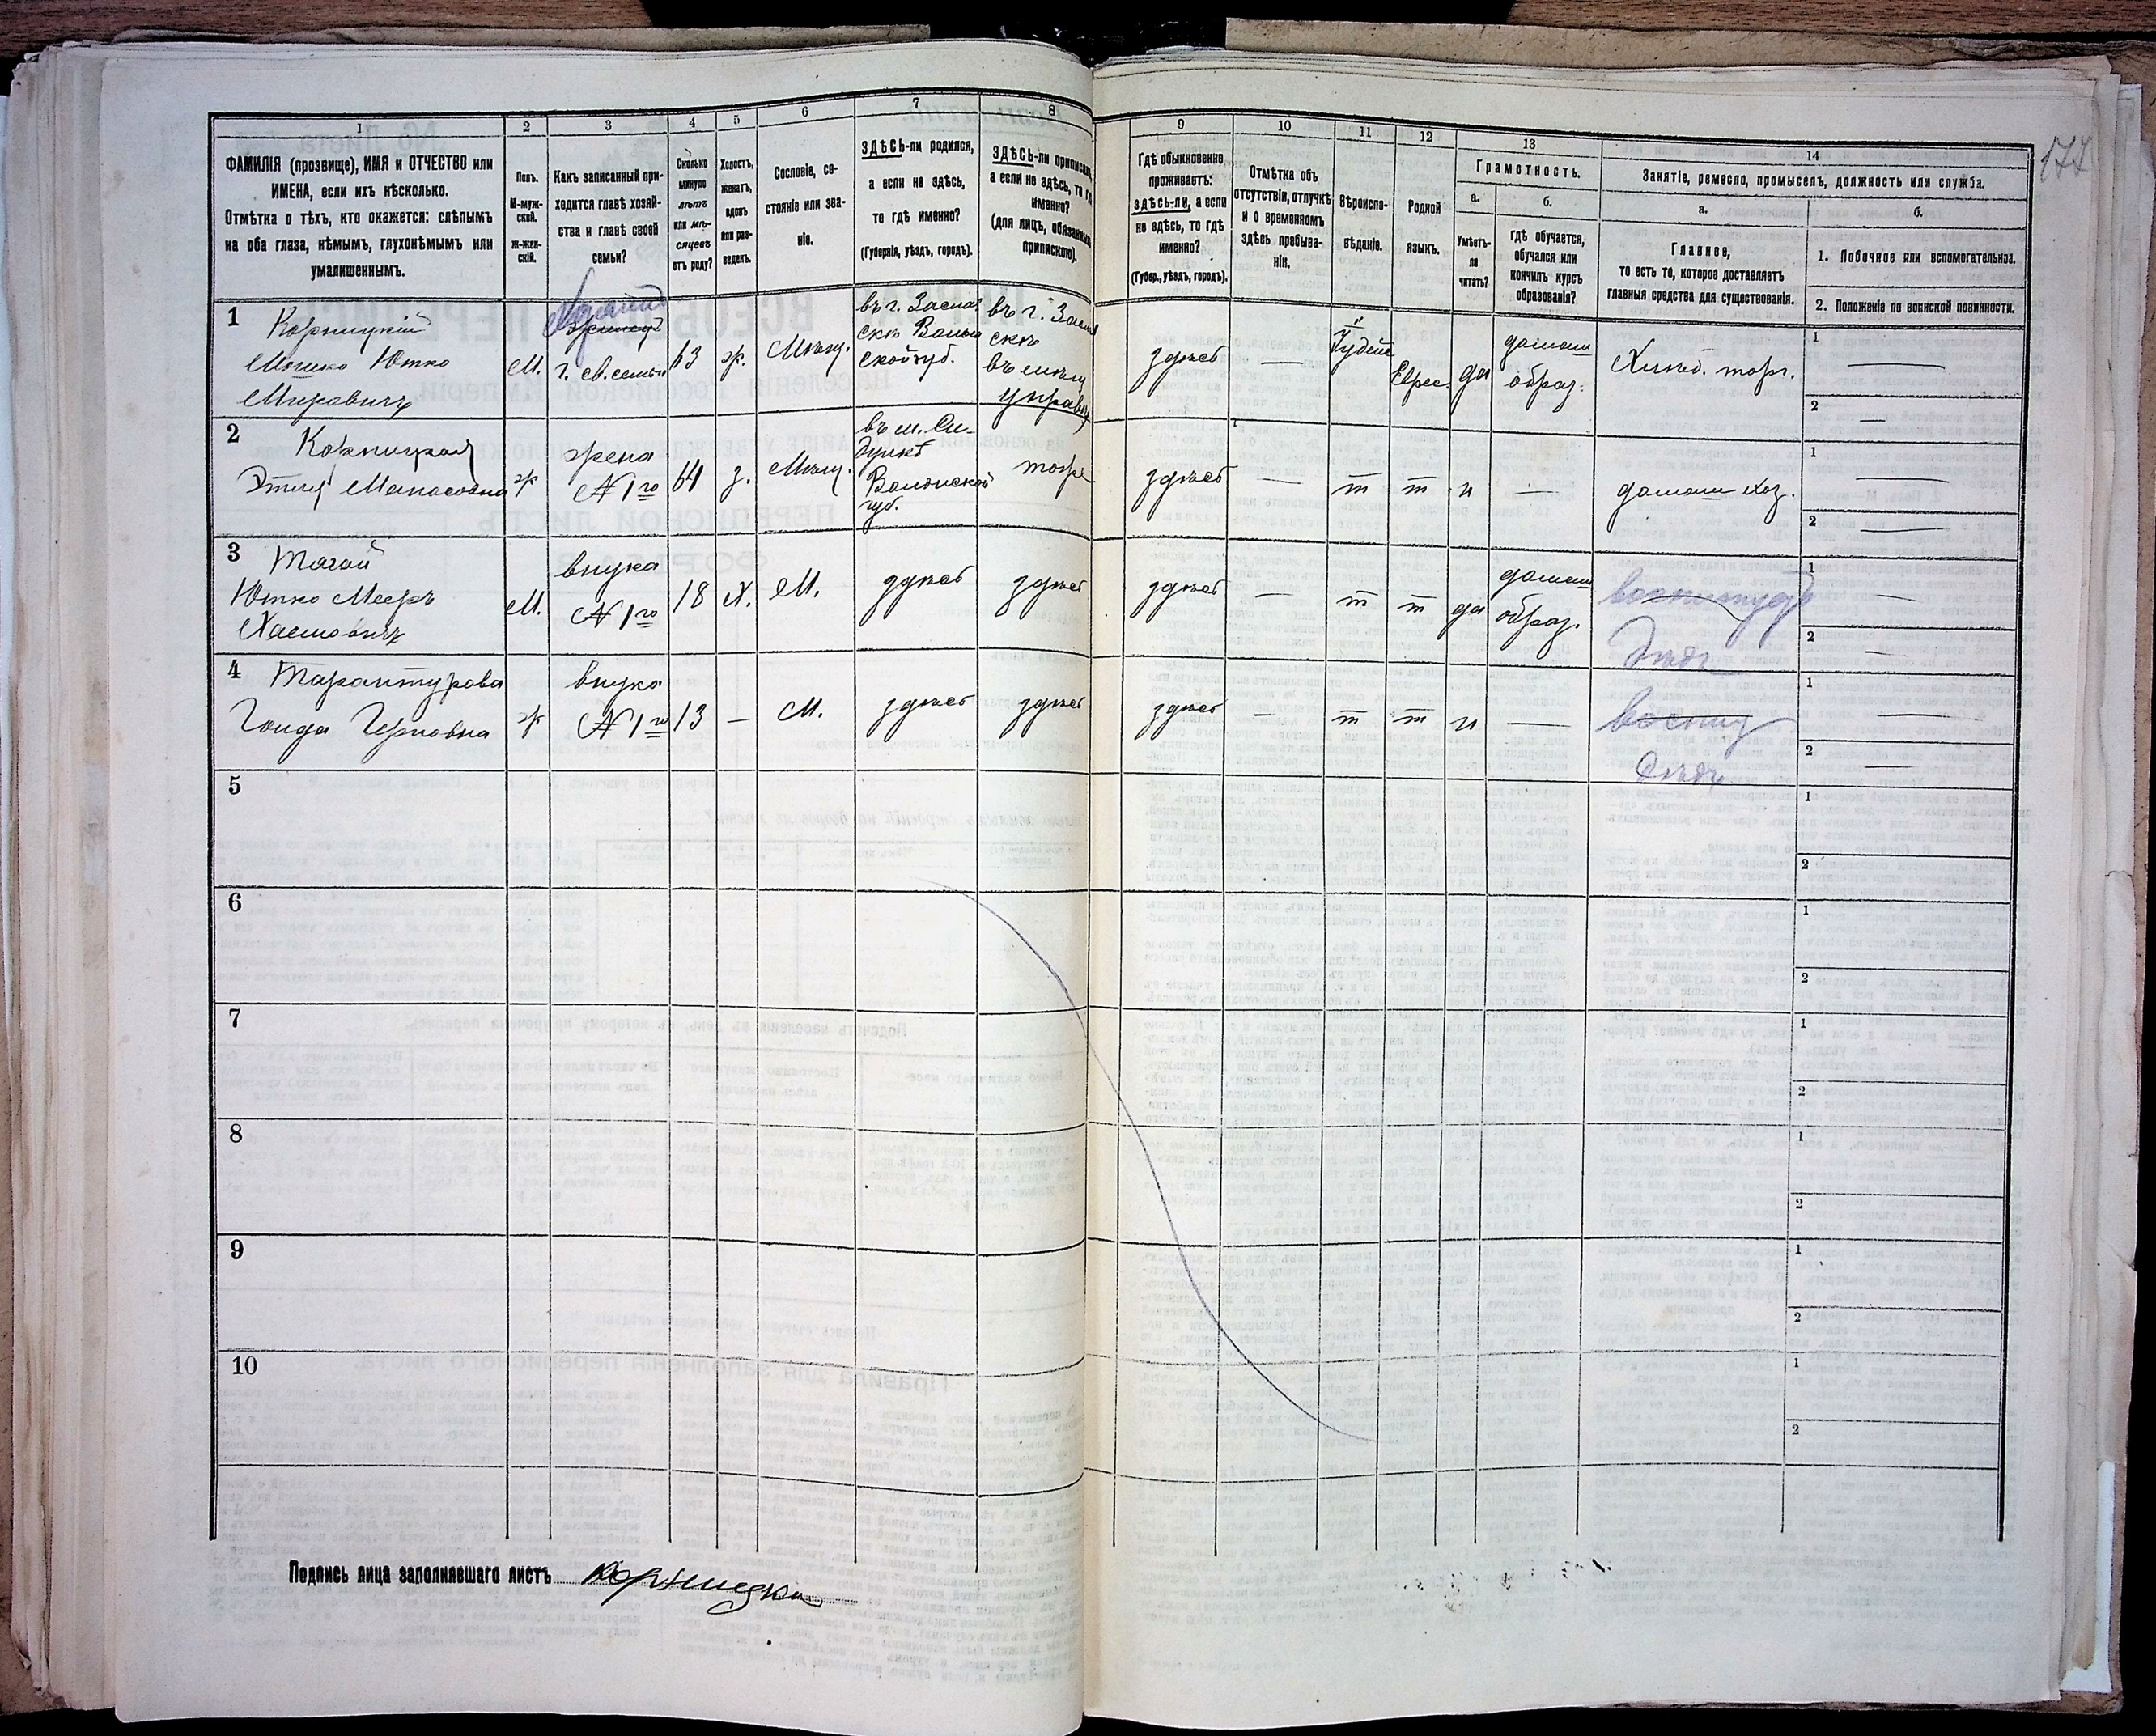 177
1
2
3
4
5
6
7
8
9
10
11
12
13
14
ФАМИЛІЯ (прозвище), ИМЯ и ОТЧЕСТВО или
ИМЕНА, если ихъ нѣсколько.
Отмѣтка о тѣхъ, кто окажется: слѣпымъ
на оба глаза, нѣмымъ, глухонѣмымъ или
умалишеннымъ.
Полъ.
М-муж-
ской.
Ж-жен-
скій.
Какъ записанный при-
ходится главѣ хозяй-
ства и главѣ своей
семьи?
Сколько
минуло
лѣтъ
или мѣ-
сяцевъ
отъ роду?
Холостъ,
женатъ,
вдовъ
или раз-
веденъ.
Сословіе, со-
стояніе или зва-
ніе.
ЗДѢСЬ-ли родился,
а если не здѣсь,
то гдѣ именно?
(Губернія, уѣздъ, городъ).
ЗДѢСЬ-ли приписанъ,
а если не здѣсь, то гдѣ
именно?
(для лицъ, обязанныхъ
припискою).
Гдѣ обыкновенно
проживаетъ:
здѣсь-ли, а если
не здѣсь, то гдѣ
именно?
(Губер., уѣздъ, городъ).
Отмѣтка объ
отсутствіи, отлучкѣ
и о временномъ
здѣсь пребыва-
ніи.
Вѣроиспо-
вѣданіе.
Родной
языкъ.
Грамотность.
а.
б.
Умѣетъ-
ли
читать?
Гдѣ обучается,
обучался или
кончилъ курсъ
образованія?
Занятіе, ремесло, промыселъ, должность или служба.
а.
б.
Главное,
то есть то, которое доставляетъ
главныя средства для существованія.
1. Побочное или вспомогательное.
2. Положеніе по воинской повинности.
1
Корницкій
Мошко Ютко
Мировичъ
М.
г. св. семьи
63
ж.
Мѣщ.
въ г. Заслав
скѣ Волын
ской губ.
въ г. Заслав
скѣ
въ мѣщ
управѣ
здѣсь
—
Іудей
Еврес.
да
домашн
образ.
Хлѣб. торг.
1 —
2 —
2
Корницкая
Этля Манасовна
ж
жена
№ 1го
64
з.
Мѣщ.
въ м. Си-
дункѣ
Волынской
губ.
тоже
здѣсь
—
т
т
н
—
домашн хоз.
1 —
2 —
3
Ютко Мееръ
Хаимовичъ
М.
внука
№ 1го
18
Х.
М.
здѣсь
здѣсь
здѣсь
—
т
т
да
домашн
образ.
дѣдъ
1 —
2 —
4
Тарантурова
ж
внука
№ 1го
13
—
М.
здѣсь
здѣсь
здѣсь
—
т
т
н
—
дѣдъ
1 —
2 —
5
1
2
6
1
2
7
1
2
8
1
2
9
1
2
10
1
2
Подпись лица заполнявшаго листъ